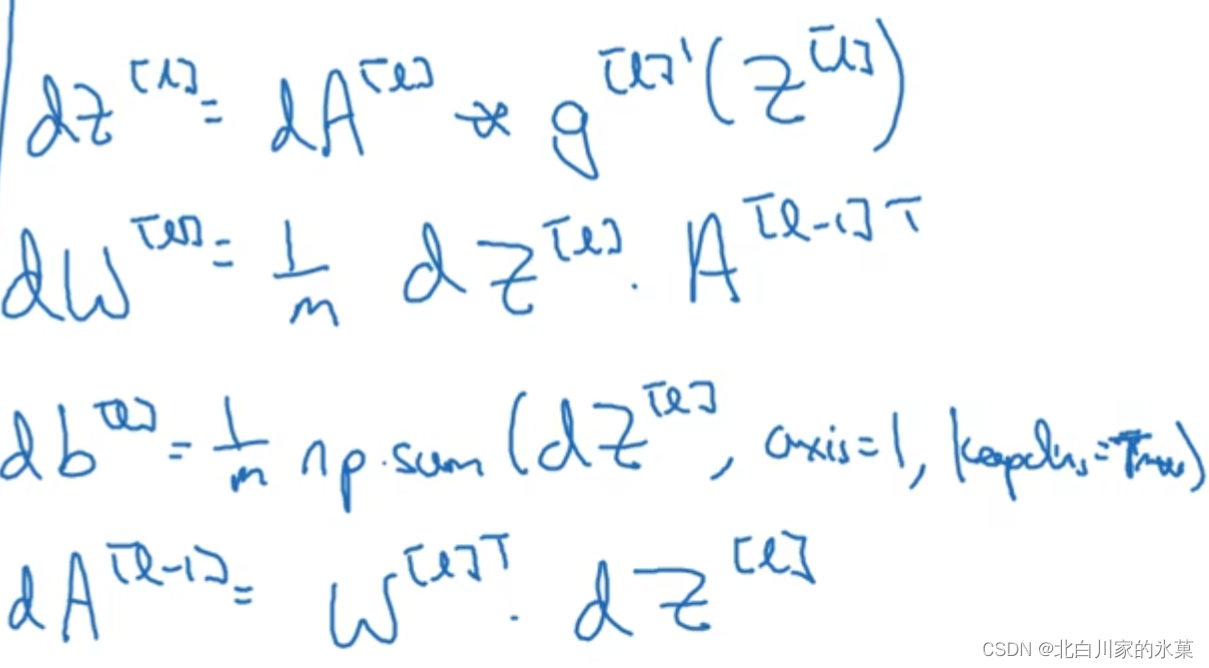 dZ^[l] = dA^[l] * g^[l]'(Z^[l])
dW^[l] = 1/m dZ^[l] . A^[l-1]T
db^[l] = 1/m np.sum(dZ^[l], axis=1, keepdims=True)
dA^[l-1] = W^[l]T . dZ^[l]
CSDN @北白川家的氷菓